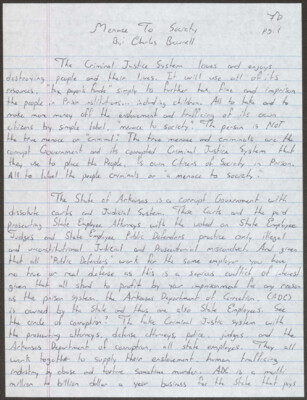 YD
pg.1
Menace To Society
By: Charles Burnell
The Criminal Justice System loves and enjoys
destroying people and their lives. It will use all of its
resources, "tax payers funds" simply to further fine, and imprison
the people in Prison institutions including children. All to take and to
make more money off the enslavement and trafficking of its own
citizens by simple label, menace to society. The person is NOT
the true menace or Criminal! The true menace and criminals are the
corrupt Government and its corrupted Criminal Justice System that
they use to place the People, its own Citizens of Society in Prison.
All to label the people criminals or "a menace to society".
The State of Arkansas is a corrupt Government with
dissolute courts and Judicial System. These Courts and the paid
prosecuting State Employee Attorneys with the voted on State Employee
Judges and State Employee Public Defenders practice only illegal
and unconstitutional Judicial and Prosecutorial misconduct. And given
that all "Public Defenders" work for the same employer you have
no true or real defense as this is a serious conflict of interest
given that all stand to profit by your imprisonment for any reason
as the prison system, the Arkansas Department of Correction (ADC)
is owned by the State and thus are also State Employees. See
the circle of corruption? The Criminal Justice System with
the prosecuting attorneys, defense attorneys, police, judges, and the
Arkansas Department of corruption, all state employees. They all
work together to supply these enslavement, human trafficking
industry by abuse and torture sometime murder. ADC is a multi
million to billion dollar a year business for the State that pays